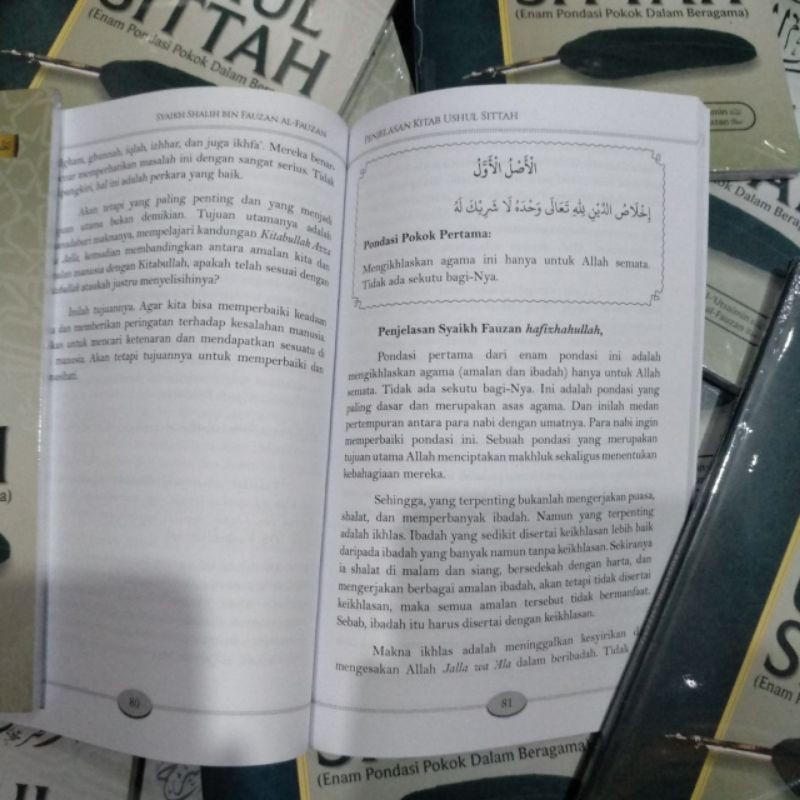 SITTAH
(Enam Pondasi Pokok Dalam Beragama)
(Enam Pondasi Pokok Dalam Beragama)
SYAIKH SHALIH BIN FAUZAN AL-FAUZAN
idgham, ghunnah, iqlab, izhhar, dan juga ikhfa'. Mereka benar-
memperhatikan masalah ini dengan sangat serius. Tidak
hal ini adalah perkara yang baik.
Akan tetapi yang paling penting dan yang menjadi
tujuan utama bukan demikian. Tujuan utamanya adalah
maknanya, mempelajari kandungan Kitabullah Azza
kemudian membandingkan antara amalan kita dan
manusia dengan Kitabullah, apakah telah sesuai dengan
ataukah justru menyelisihinya?
Inilah tujuannya. Agar kita bisa memperbaiki keadaan
dan memberikan peringatan terhadap kesalahan manusia.
untuk mencari ketenaran dan mendapatkan sesuatu di
manusia. Akan tetapi tujuannya untuk memperbaiki dan
80
PENJELASAN KITAB USHUL SITTAH
الْأَصْلُ الْأَوَّلُ
إِخْلَاصُ الدِّيْنِ لِلَّهِ تَعَالَى وَحْدَهُ لَا شَرِيْكَ لَهُ
Pondasi Pokok Pertama:
Mengikhlaskan agama ini hanya untuk Allah semata.
Tidak ada sekutu bagi-Nya.
Penjelasan Syaikh Fauzan hafizhahullah,
Pondasi pertama dari enam pondasi ini adalah
mengikhlaskan agama (amalan dan ibadah) hanya untuk Allah
semata. Tidak ada sekutu bagi-Nya. Ini adalah pondasi yang
paling dasar dan merupakan asas agama. Dan inilah medan
pertempuran antara para nabi dengan umatnya. Para nabi ingin
memperbaiki pondasi ini. Sebuah pondasi yang merupakan
tujuan utama Allah menciptakan makhluk sekaligus menentukan
kebahagiaan mereka.
Sehingga, yang terpenting bukanlah mengerjakan puasa,
shalat, dan memperbanyak ibadah. Namun yang terpenting
adalah ikhlas. Ibadah yang sedikit disertai keikhlasan lebih baik
daripada ibadah yang banyak namun tanpa keikhlasan. Sekiranya
ia shalat di malam dan siang, bersedekah dengan harta, dan
mengerjakan berbagai amalan ibadah, akan tetapi tidak disertai
keikhlasan, maka semua amalan tersebut tidak bermanfaat.
Sebab, ibadah itu harus disertai dengan keikhlasan.
Makna ikhlas adalah meninggalkan kesyirikan
mengesakan Allah Jalla wa 'Ala dalam beribadah. Tidak
81
Pokok Dalam Beragama)
(Enam
(Enam Pondasi Pokok Dalam Beragama)